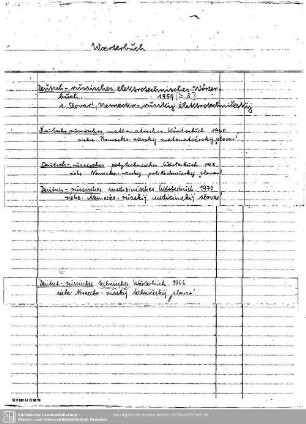 Wörterbuch
Deutsch-russisches elektrotechnisches Wörter-
buch. 1959
s. Slovar', Nemecko-russkij elektrotechničeskij
Deutsch-russisches mathematisches Wörterbuch 1960
siehe Nemecko-russkij matematičeskij slovar'
Deutsch-russisches polytechnisches Wörterbuch
siehe Nemecko-russkij politechničeskij slovar'
Deutsch-russisches medizinisches Wörterbuch 1970
siehe Nemecko-russkij medicinskij slovar'
Deutsch-russisches technisches Wörterbuch
siehe Nemecko-russkij techničeskij slovar'
Sächsische Landesbibliothek -
Staats- und Universitätsbibliothek Dresden